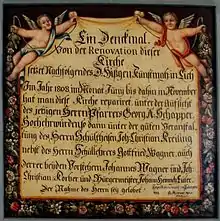 Ein Denkmal.
Von der Renovation dieser
Kirche
setzet Nachfolgendes D. Hißgen Kunstmahl in Lich
Im Jahr 1808. im Monat Juny bis dahin in November
hat man diese Kirche reparirt, unter der Aufsicht
des jetzigen Herrn Pfarrers Georg K. Schapper
Hochehrwürden dann unter der guten Veranstal
tung des Herrn Schultheisen Joh. Christian Kreiling
nebst des Herrn Schultheisers Gotfried Wagner, auch
derer beiden Vorsteher Johannes Wagner und Joh
Christian Körber und Bürgermeister Johann Henrich Luh
Der Nahme des Herrn sey gelobet